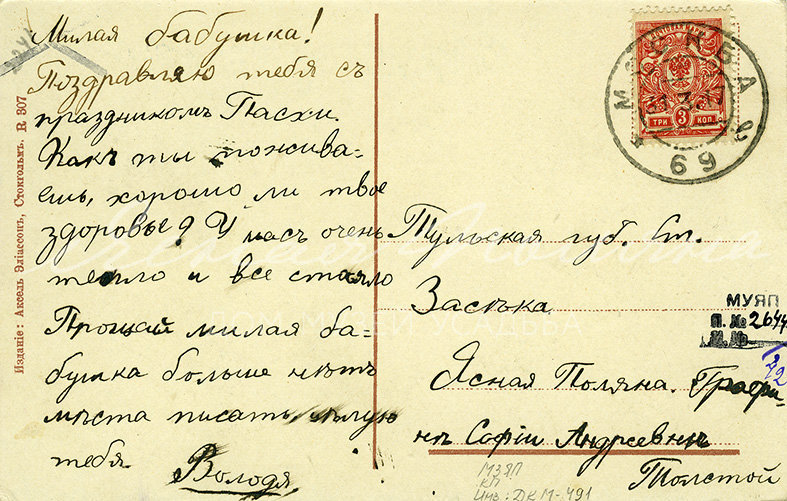 Милая бабушка!
Поздравляю тебя съ
праздникомъ Пасхи.
Какъ ты пожива-
ешь, хорошо ли твое
здоровье? У насъ очень
тепло и все стаяло
Прощай милая ба-
бушка больше нѣтъ
мѣста писать, цѣлую
тебя
Володя
Изданіе: Аксель Эліассонъ, Стокгольмъ. R 307
МОСКВА
69
ТРИ 3 КОП
Тульская губ. Ст.
Засѣка.
Ясная Поляна. Графи-
нѣ Софіи Андреевнѣ
Толстой
МУЯП
П. № 2644
И. №
МЗЯП
КП
Инв: ДКМ-491
ДОМ МУЗЕЙ УСАДЬБА